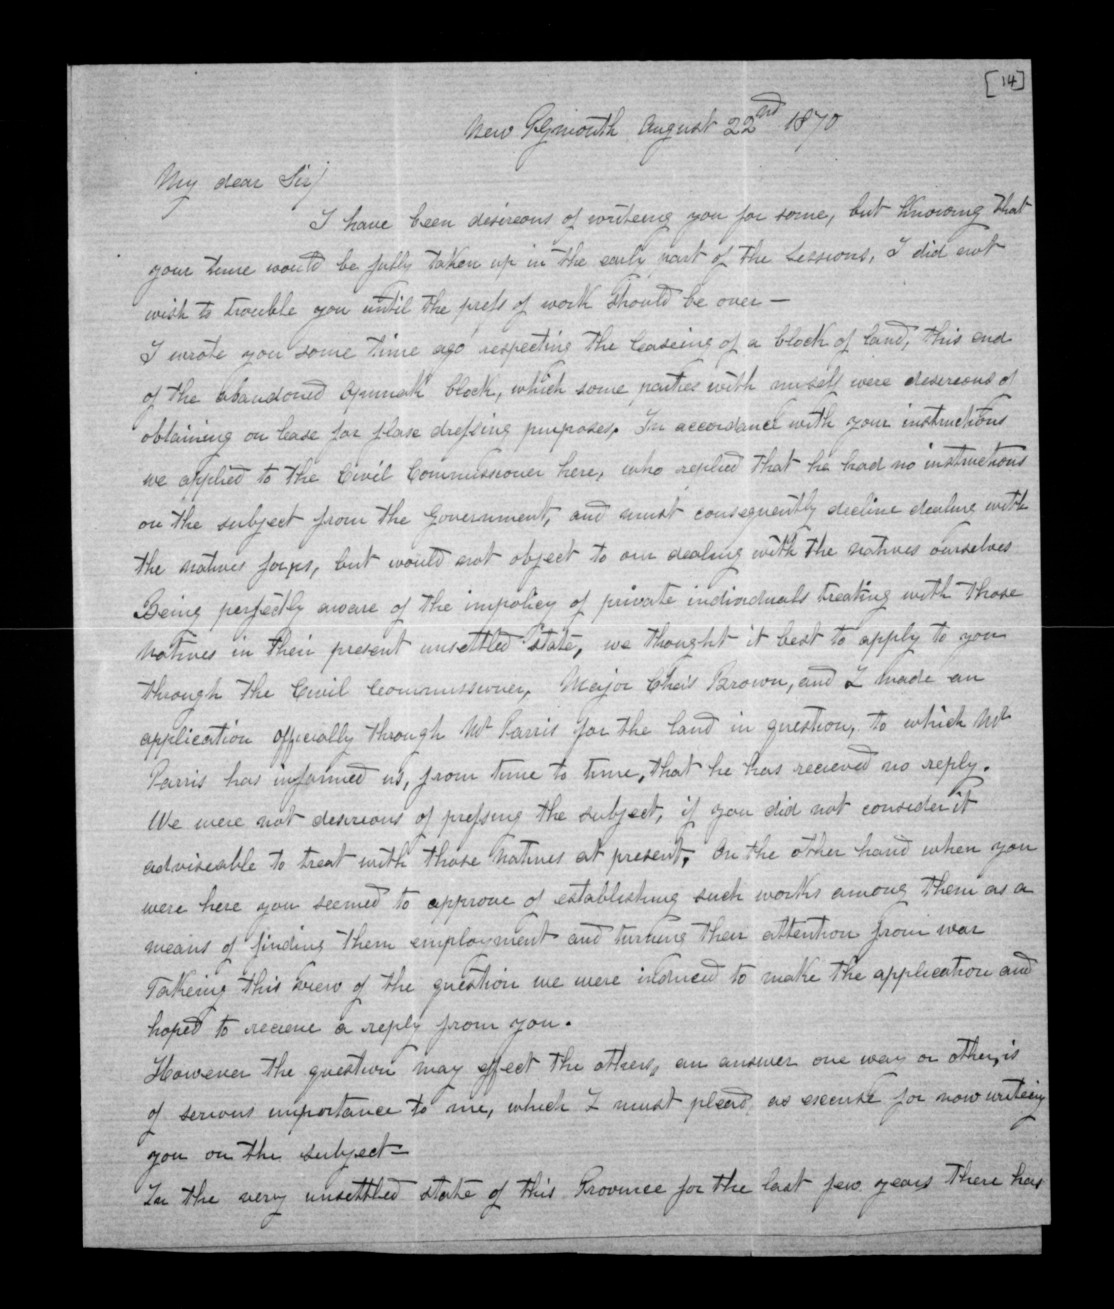 [14]
New Plymouth August 22nd 1870
My dear Sir/
I have been desireous of writeing you for some, but Knowing that
your time would be fully taken up in the early part of the Sessions, I did not
wish to trouble you until the press of work should be over —
I wrote you some time ago respecting the leaseing of a block of land, this end
of the abandoned Opunaki block, which some parties with myself were desereous of
obtaining on lease for flax dressing purposes. In accordance with your instructions
we applied to the Civil Commissioner here, who replied that he had no instructions
on the subject from the Government, and must consequently decline dealing with
the natives for us, but would not object to our dealing with the natives ourselves
Being perfectly aware of the impolicy of private individuals treating with those
Natives in their present unsettled state, we thought it best to apply to you
through the Civil Commissioner, Major Chas Brown, and I made an
application officially through Mr Parris for the land in question, to which Mr
Parris has informed us, from time to time, that he has recieved no reply.
We were not desireous of pressing the subject, if you did not consider it
adviseable to treat with those Natives at present, On the other hand when you
were here you seemed to approve of establishing such works among them as a
means of finding them employment and turning their attention from war
Takeing this view of the question we were induced to make the application and
hoped to recieve a reply from you.
However the question may effect the others, an answer one way or other, is
of serious importance to me, which I must plead as excuse for now writeing
you on the subject =
In the very unsettled state of this Province for the last few years there has